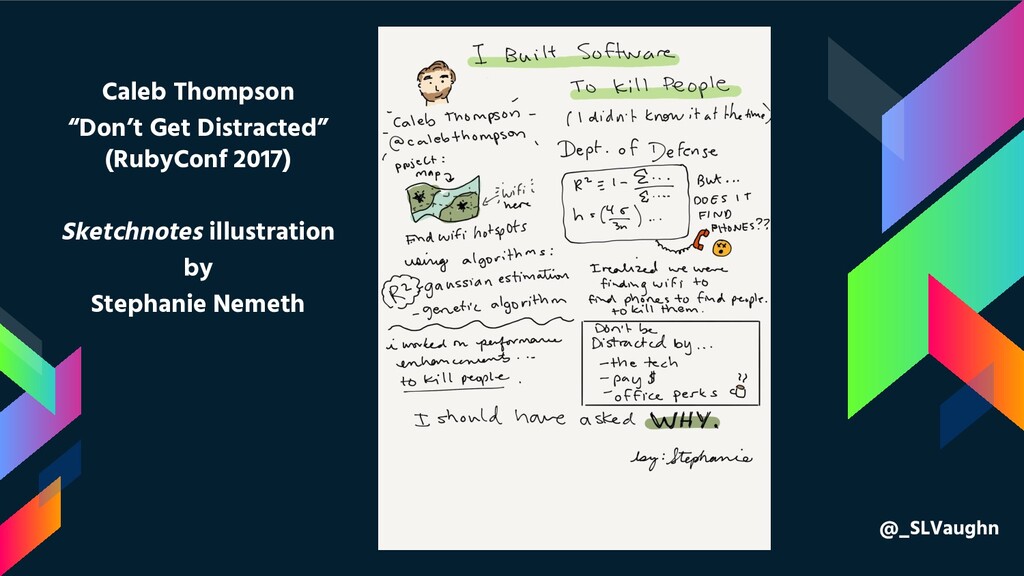 Caleb Thompson
“Don’t Get Distracted”
(RubyConf 2017)
Sketchnotes illustration
by
Stephanie Nemeth
I Built Software
To Kill People
(I didn't know it at the time)
Caleb Thompson
@calebthompson
project:
map
wifi
here
Find wifi hotspots
using algorithms:
R² - gaussian estimation
- genetic algorithm
i worked on performance
enhancements...
to kill people.
Dept. of Defense
R² = 1 - Σ... / Σ....
h = (4σ / 3n) ...
But...
DOES IT
FIND
PHONES??
I realized we were
finding wifi to
find phones to find people.
to kill them.
Don't be
Distracted by...
- the tech
- pay $
- office perks
I should have asked WHY.
by: Stephanie
@_SLVaughn